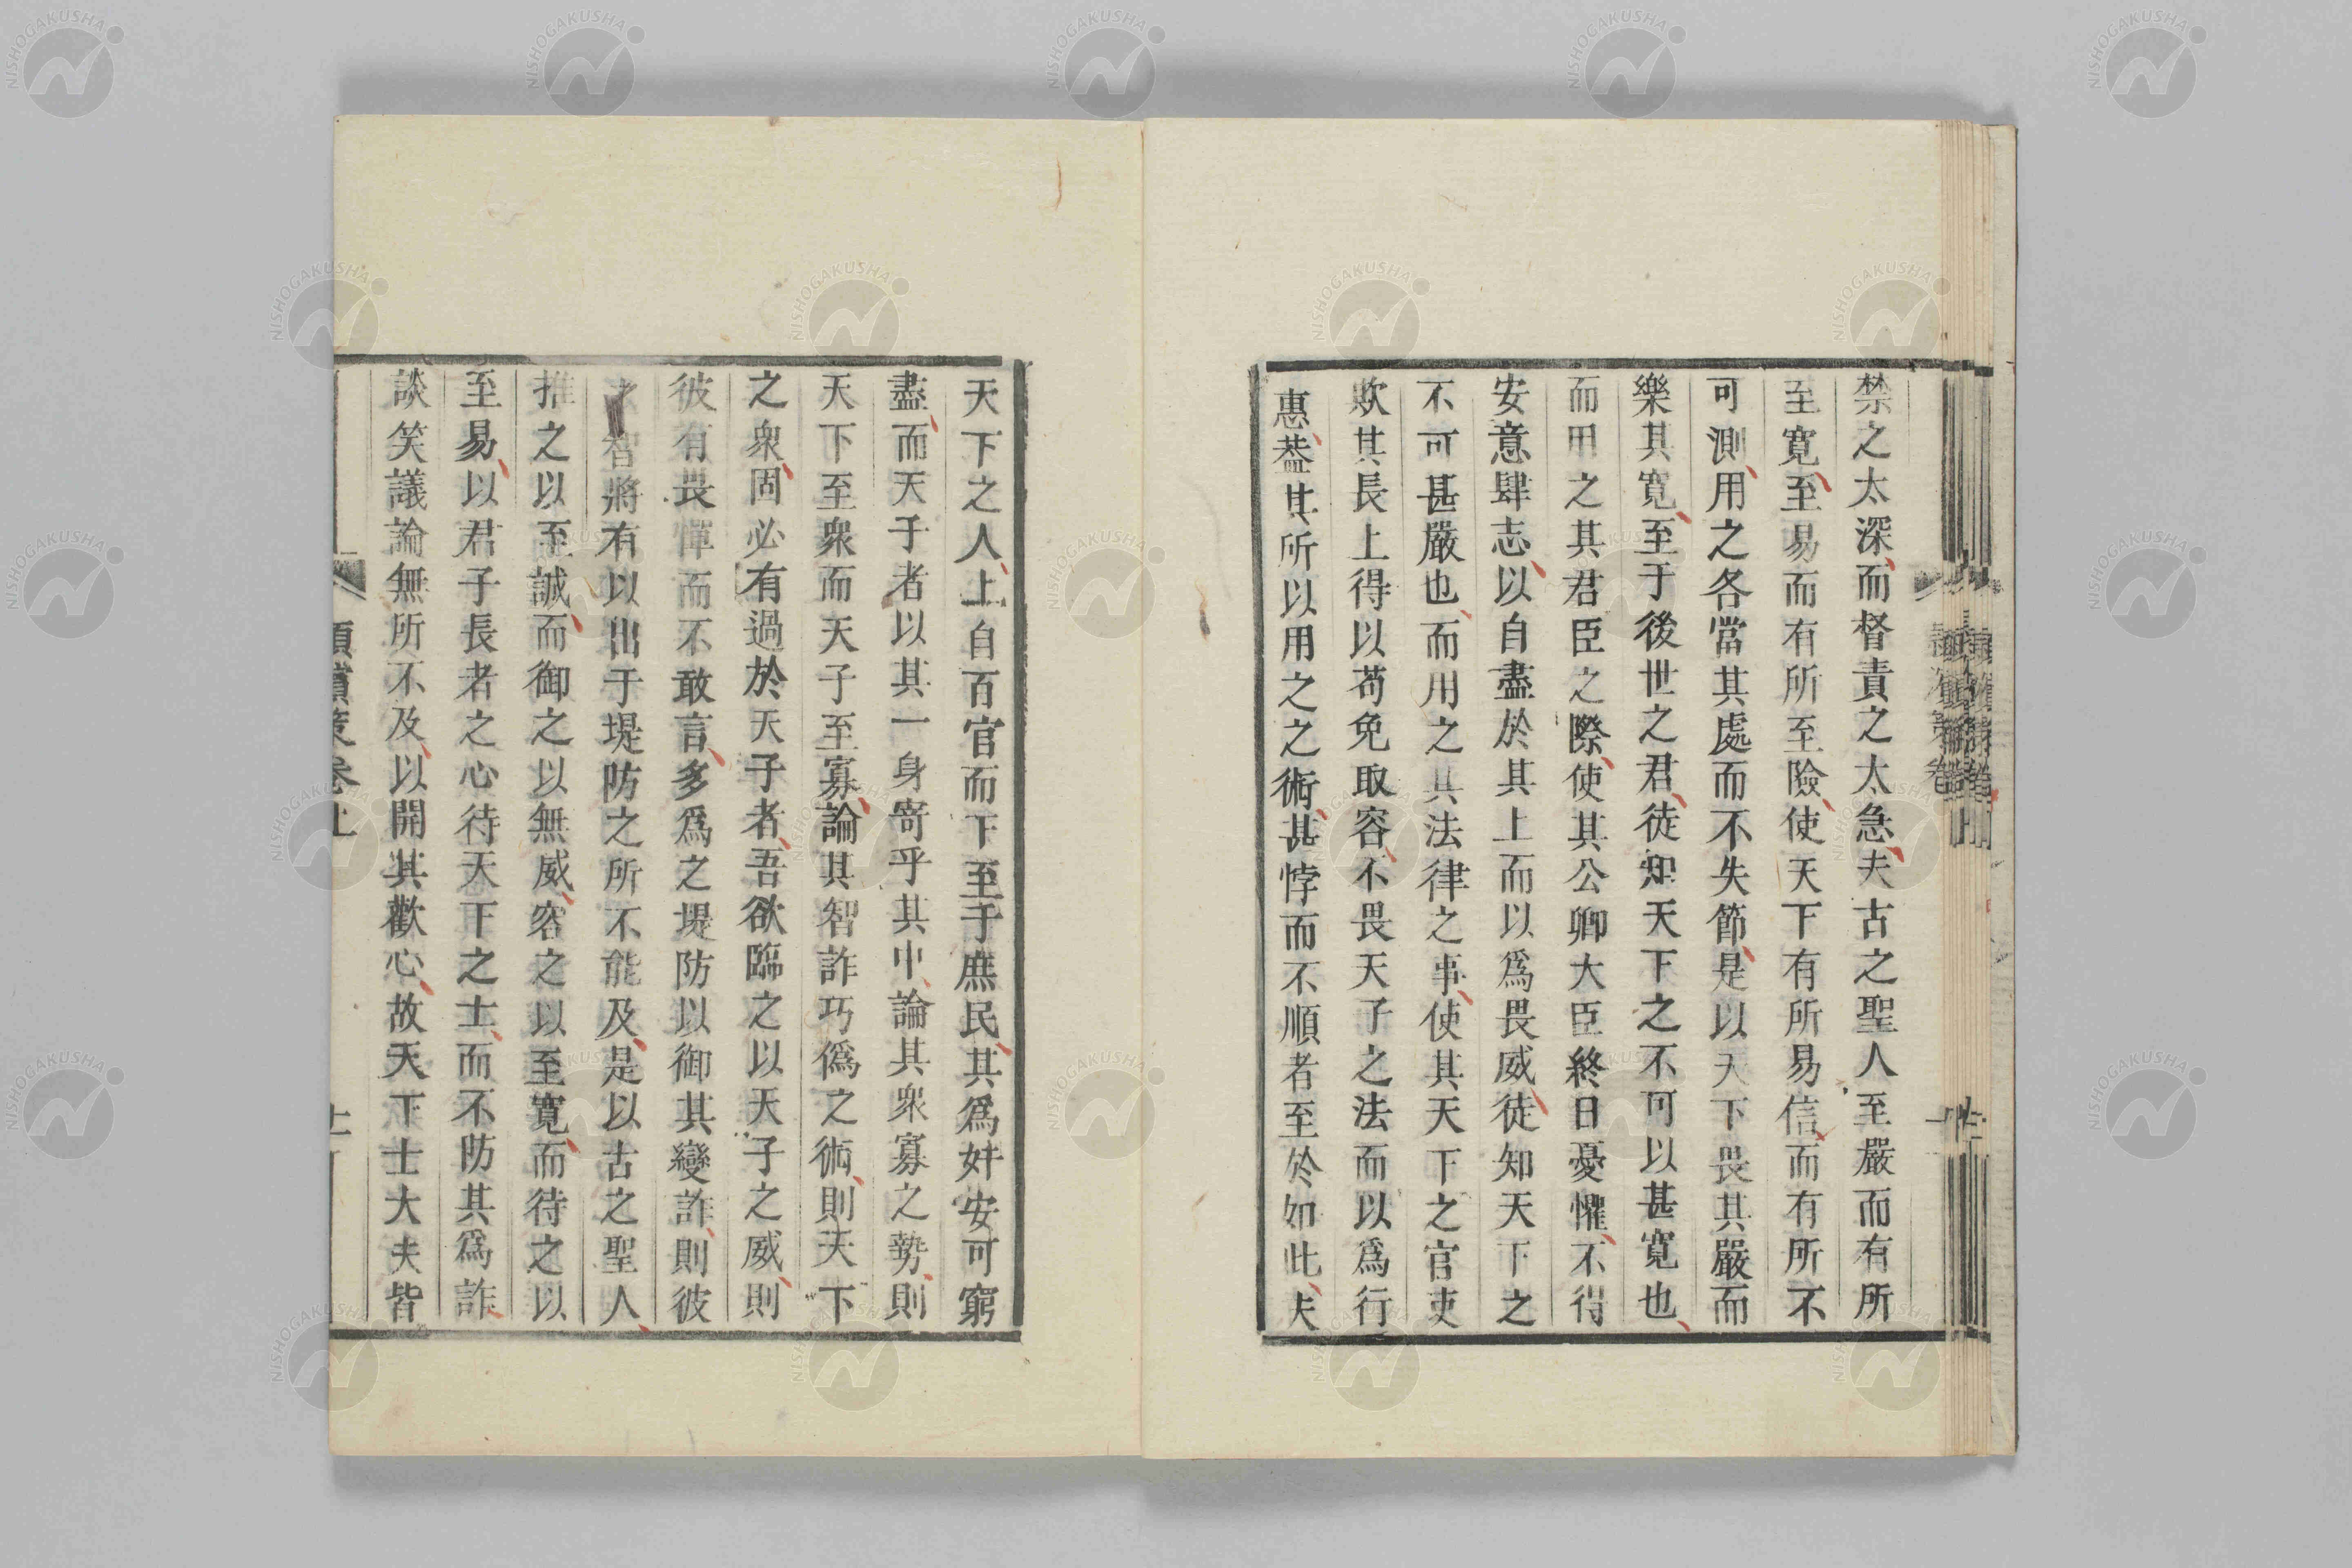 禁之太深而督責之太急夫古之聖人至嚴而有所
至寛至易而有所至險使天下有所易信而有所不
可測用之各當其處而不失節是以天下畏其嚴而
樂其寛至于後世之君徒知天下之不可以甚寛也
而用之其君臣之際使其公卿大臣終日憂懼不得
安意肆志以自盡於其上而以爲畏威徒知天下之
不可甚嚴也而用之其法律之事使其天下之官吏
欺其長上得以苟免取容不畏天子之法而以爲行
惠葢其所以用之之術甚悖而不順者至於如此夫
天下之人上自百官而下至于庶民其爲奸安可窮
盡而天子者以其一身寄乎其中論其衆寡之勢則
天下至衆而天子至寡論其智詐巧僞之術則天下
之衆固必有過於天子者吾欲臨之以天子之威則
彼有畏憚而不敢言多爲之堤防以御其變詐則彼
智將有以出于堤防之所不能及是以古之聖人
推之以至誠而御之以無威容之以至寛而待之以
至易以君子長者之心待天下之士而不防其爲詐
談笑議論無所不及以開其歡心故天下士大夫皆
頴濱策卷上
NISHOGAKUSHA